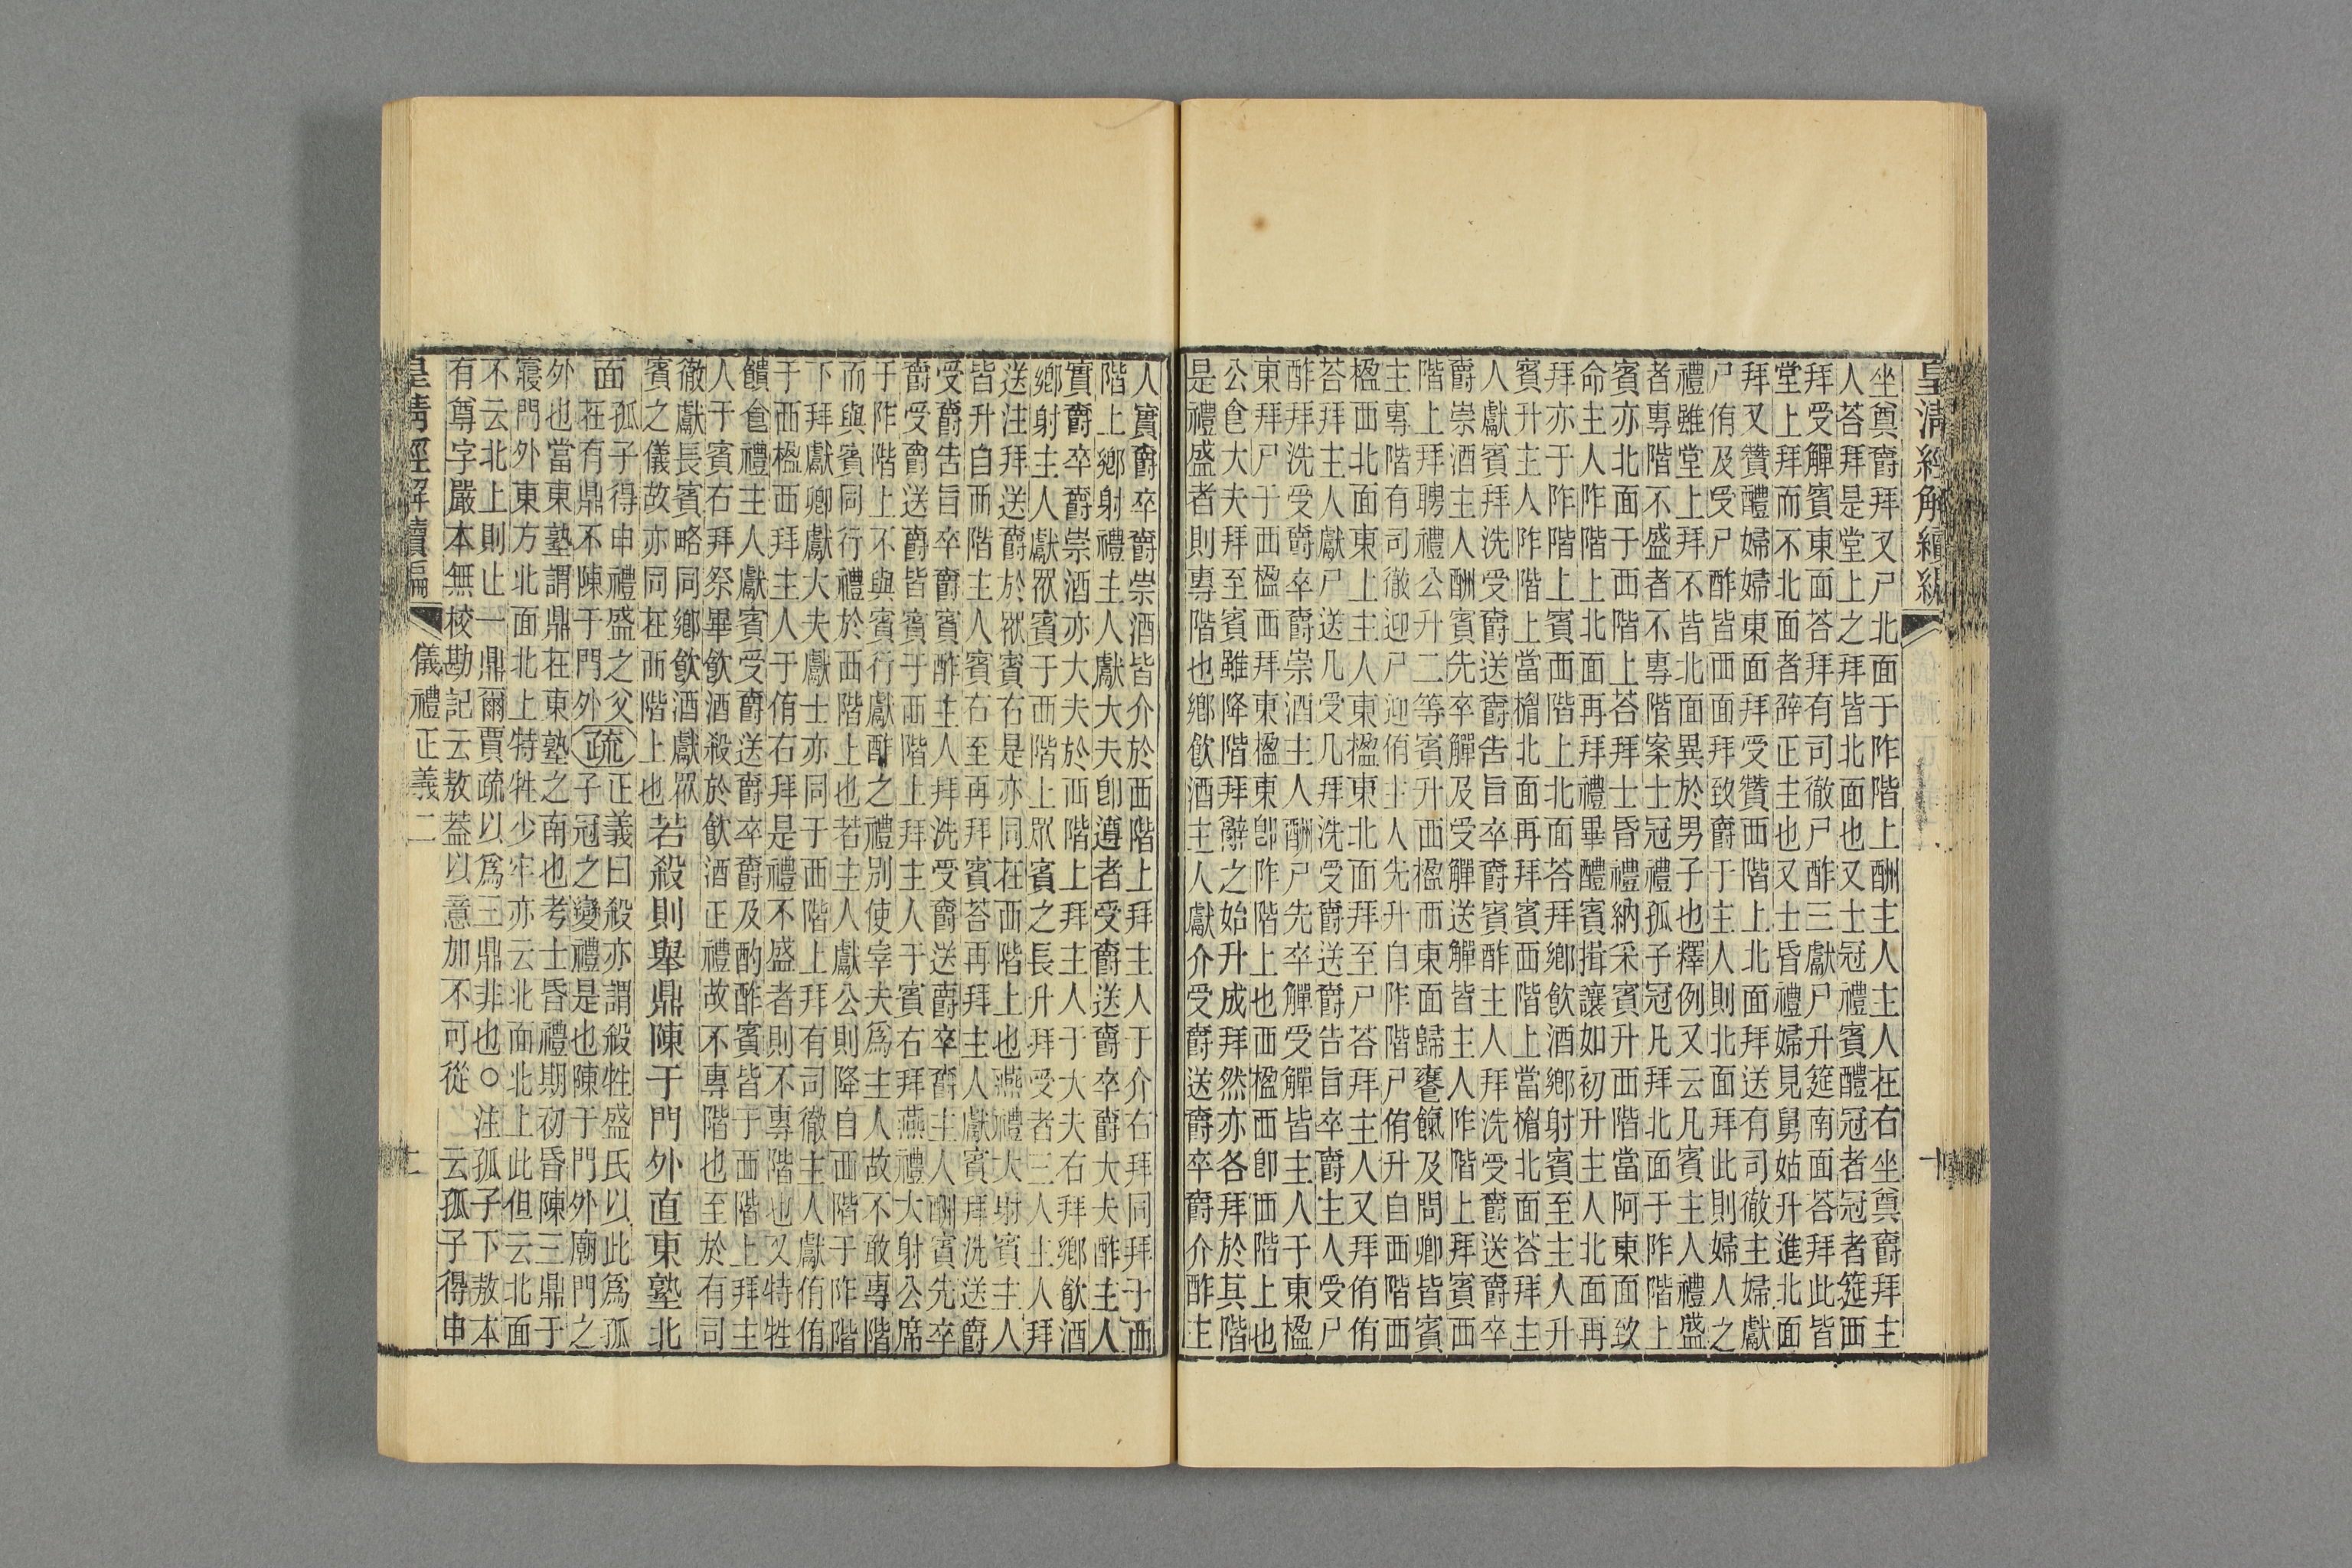 皇淸經解續編
坐奠爵拜又尸北面于阼階上酬主人主人在右坐奠爵拜主
人荅拜是堂上之拜皆北面也又士冠禮賓醴冠者冠者筵西
拜受觶賓東面荅拜有司徹尸酢三獻尸升筵南面荅拜此皆
堂上拜而不北面者辭正主也又士昏禮婦見舅姑升進北面
拜又贊醴婦婦東面拜受贊西階上北面拜送有司徹主婦獻
尸侑及受尸酢皆西面拜致爵于主人則北面拜此則婦人之
禮雖堂上拜不皆北面異於男子也釋例又云凡賓主人禮盛
者專階不盛者不專階案士冠禮孤子冠凡拜北面于阼階上
賓亦北面于西階上荅拜士昏禮納采賓升西階當阿東面致
命主人阼階上北面再拜禮畢醴賓揖讓如初升主人北面再
拜亦于阼階上賓西階上北面荅拜鄉飲酒鄉射賓至主人升
賓升主人阼階上當楣北面再拜賓西階上當楣北面荅拜主
人獻賓拜洗受爵送爵告旨卒爵賓酢主人拜洗受爵送爵卒
爵崇酒主人酬賓先卒觶及受觶送觶皆主人阼階上拜賓西
階上拜聘禮公升二等賓升西楹西東面歸饔餼及問卿皆賓
主專階有司徹迎尸迎侑主人先升自阼階尸侑升自西階西
楹西北面東上主人東楹東北面拜至尸荅拜主人又拜侑侑
荅拜主人獻尸送几受几拜洗受爵送爵告旨卒爵主人受尸
酢拜洗受爵卒爵崇酒主人酬尸先卒觶受觶皆主人于東楹
東拜尸于西楹西拜東楹東卽阼階上也西楹西卽西階上也
公食大夫拜至賓雖降階拜辭之始升成拜然亦各拜於其階
是禮盛者則專階也鄉飲酒主人獻介受爵送爵卒爵介酢主
十
人實爵卒爵崇酒皆介於西階上拜主人于介右拜同拜于西
階上鄉射禮主人獻大夫卽遵者受爵送爵卒爵大夫酢主人
實爵卒爵崇酒亦大夫於西階上拜主人于大夫右拜鄉飲酒
鄉射主人獻眾賓于西階上眾賓之長升拜受者三人主人拜
送注拜送爵於眾賓右是亦同在西階上也燕禮大射賓主人
皆升自西階主人賓右至再拜賓荅再拜主人獻賓拜洗送爵
受爵告旨卒爵賓酢主人拜洗受爵送爵卒爵主人酬賓先卒
爵受爵送爵皆賓于西階上拜主人于賓右拜燕禮大射公席
于阼階上不與賓行獻酢之禮別使宰夫爲主人故不敢專階
而與賓同行禮於西階上也若主人獻公則降自西階于阼階
下拜獻卿獻大夫獻士亦同于西階上拜有司徹主人獻侑侑
于西楹西拜主人于侑右拜是禮不盛者則不專階也又特牲
饋食禮主人獻賓受爵送爵卒爵及酌酢賓皆于西階上拜主
人于賓右拜祭畢飲酒殺於飲酒正禮故不專階也至於有司
徹獻長賓略同鄉飲酒獻眾
賓之儀故亦同在西階上也
若殺則舉鼎陳于門外直東塾北
面
孤子得申禮盛之父
在有鼎不陳于門外
疏
正義曰殺亦謂殺牲盛氏以此爲孤
子冠之變禮是也陳于門外廟門之
外也當東塾謂鼎在東塾之南也考士昏禮期初昏陳三鼎于
寢門外東方北面北上特牲少牢亦云北面北上此但云北面
不云北上則止一鼎爾賈疏以爲三鼎非也○注孤子下敖本
有尊字嚴本無校勘記云敖葢以意加不可從 云孤子得申
皇淸經解續編
儀禮正義二